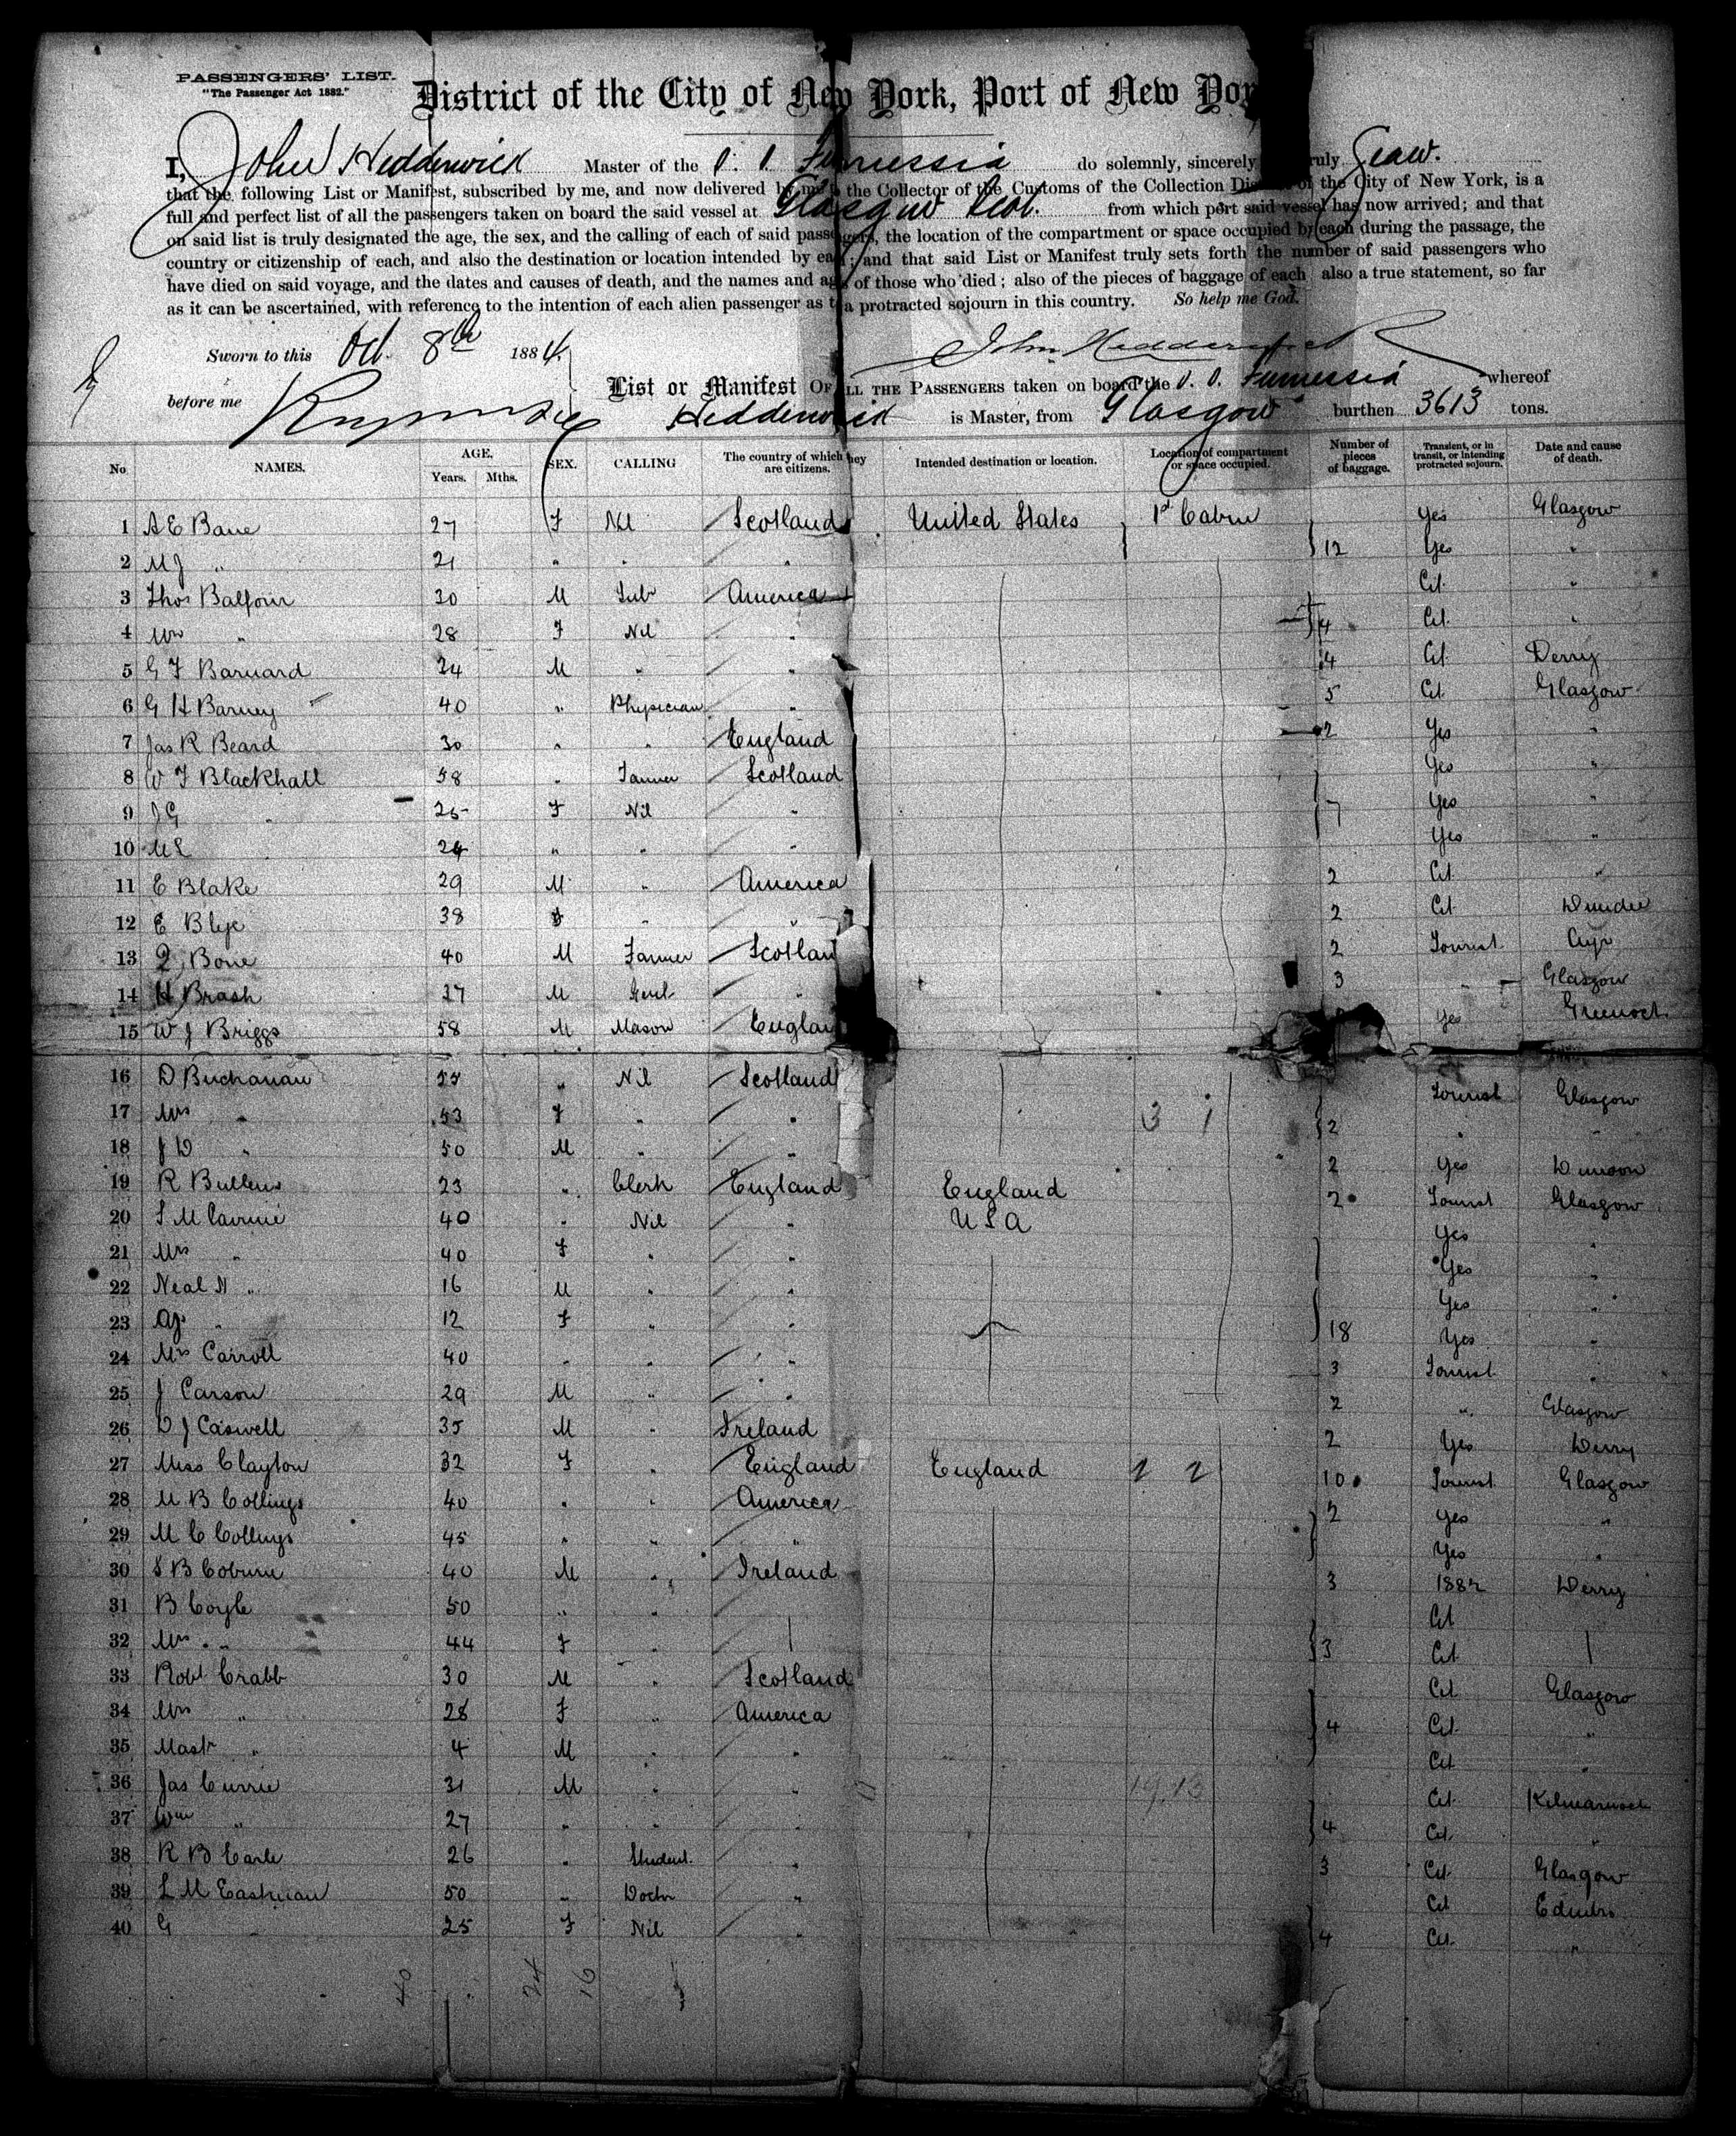 PASSENGERS' LIST.
"The Passenger Act 1882."
District of the City of New York, Port of New Yor
I, John Hedderwick Master of the S. S. Furnessia do solemnly, sincerely ruly Swear.
that the following List or Manifest, subscribed by me, and now delivered by me to the Collector of the Customs of the Collection District of the City of New York, is a
full and perfect list of all the passengers taken on board the said vessel at Glasgow Scot. from which port said vessel has now arrived; and that
on said list is truly designated the age, the sex, and the calling of each of said passengers, the location of the compartment or space occupied by each during the passage, the
country or citizenship of each, and also the destination or location intended by each; and that said List or Manifest truly sets forth the number of said passengers who
have died on said voyage, and the dates and causes of death, and the names and ages of those who died; also of the pieces of baggage of each also a true statement, so far
as it can be ascertained, with reference to the intention of each alien passenger as to a protracted sojourn in this country. So help me God.
Sworn to this Oct. 8th 1884 John Hedderwick
List or Manifest OF ALL THE PASSENGERS taken on board the S. S. Furnessia whereof
before me Hedderwick is Master, from Glasgow burthen 3613 tons.
No. NAMES. AGE. Years. Mths. SEX. CALLING The country of which they are citizens. Intended destination or location. Location of compartment or space occupied. Number of pieces of baggage. Transient, or in transit, or intending protracted sojourn. Date and cause of death.
1 A E Bane 27 F Nil Scotland United States 1st Cabin Yes Glasgow
2 M J " 21 " " " 12 Yes "
3 Thos Balfour 30 M America Cit. "
4 Mrs " 28 F Nil " 4 Cit. "
5 G F Barnard 24 M " " 4 Cit Derry
6 G H Barney 40 " Physician " 5 Cit Glasgow
7 Jas R Beard 30 " " England 2 Yes "
8 W F Blackhall 58 " Farmer Scotland Yes "
9 J G " 25 F Nil " 7 Yes "
10 M E 24 " " " Yes "
11 E Blake 29 M " America 2 Cit "
12 E Blye 38 F " " 2 Cit Dundee
13 Q Bone 40 M Farmer Scotlan 2 Tourist Ayr
14 H Brash 27 M Gent " 3 " Glasgow
15 W J Briggs 58 M Mason Englan Yes Greenock
16 D Buchanan 55 " Nil Scotland Tourist Glasgow
17 Mrs " 53 F " " 3 1 2 "
18 J D " 50 M " " 2 Yes Dunoon
19 R Bullens 23 " Clerk England England 2 Tourist Glasgow
20 40 " Nil " U S A Yes "
21 Mrs " 40 F " " Yes "
22 Neal N " 16 M " " Yes "
23 " 12 F " " 18 Yes "
24 Mrs Carroll 40 " " " 3 Tourist "
25 J Carson 29 M " " 2 " Glasgow
26 D J Caswell 35 M " Ireland 2 Yes Derry
27 Miss Clayton 32 F " England England 2 2 10 Tourist Glasgow
28 M B Collings 40 " " America 2 Yes "
29 M C Collings 45 " " " Yes "
30 S B Coburn 40 M " Ireland 3 1882 Derry
31 B Coyle 50 " " Cit
32 Mrs " 44 F " 3 Cit
33 Robt Crabb 30 M " Scotland Cit Glasgow
34 Mrs " 28 F " America 4 Cit "
35 Mastr " 4 M " " Cit "
36 Jas Currie 31 M " " 19 13 Cit Kilmarnock
37 Wm " 27 " " " 4 Cit. "
38 R B Earle 26 " Student. " 3 Cit Glasgow
39 L M Eastman 50 " Doctor " Cit Edinbro
40 G " 25 F Nil " 4 Cit. "
40 24 16